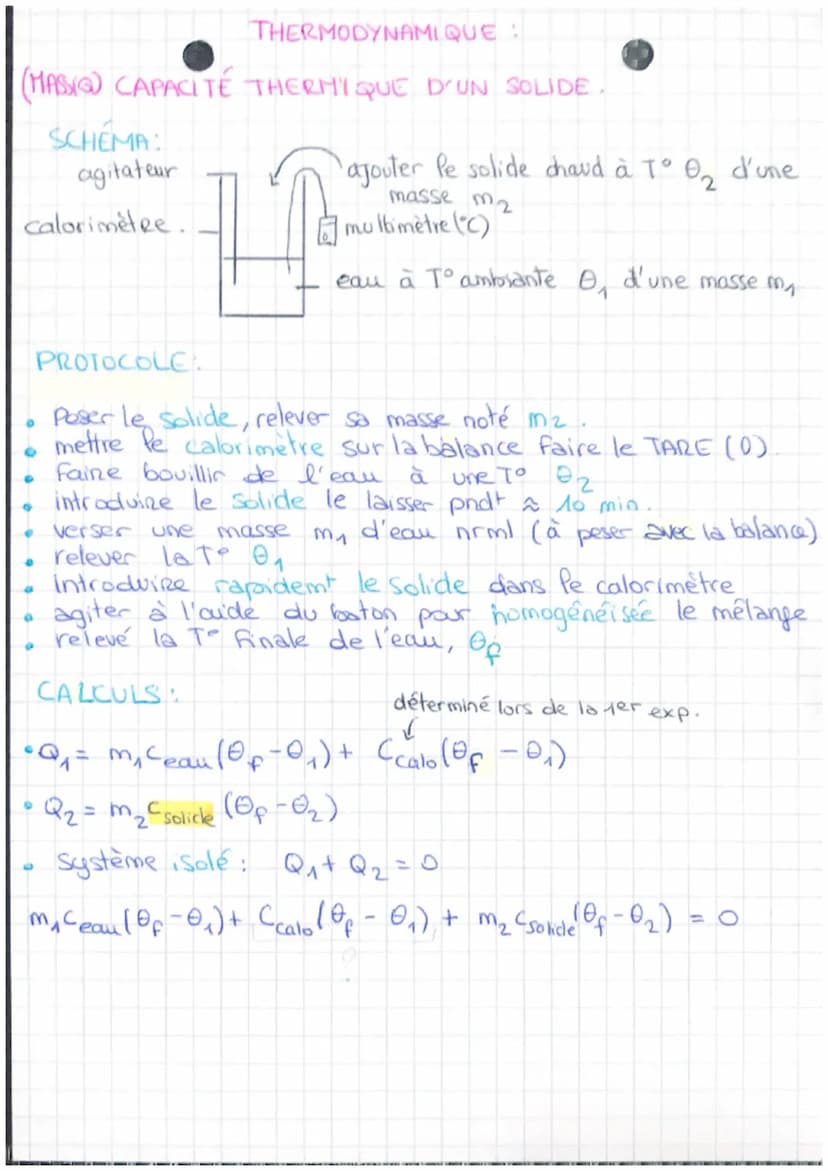 THERMODYNAMIQUE :
(MASIQ) CAPACITÉ THERMIQUE D'UN SOLIDE.
SCHÉMA:
agitateur
ajouter le solide chaud à T° θ₂ d'une
masse m₂
calorimètre.
multimètre (°C)
eau à T° ambiante θ₁ d'une masse m₁
PROTOCOLE:
• Peser le solide, relever sa masse noté m₂.
• mettre le calorimètre sur la balance faire le TARE (0)
• Faire bouillir de l'eau à une T° θ₂
• introduire le solide le laisser pndt ≈ 10 min.
• verser une masse m₁ d'eau nrml (à peser avec la balance)
• relever la T° θ₁
• Introduire rapidemt le solide dans le calorimètre
• agiter à l'aide du baston pour homogénéisée le mélange
• relevé la T° finale de l'eau, θf
CALCULS:
déterminé lors de la 1er exp.
• Q₁ = m₁ceau(θf-θ₁) + Ccalo(θf - θ₁)
• Q₂ = m₂csolide (θf-θ₂)
• Système isolé : Q₁ + Q₂ = 0
m₁ceau(θf-θ₁) + Ccalo(θf - θ₁) + m₂csolide(θf-θ₂) = 0